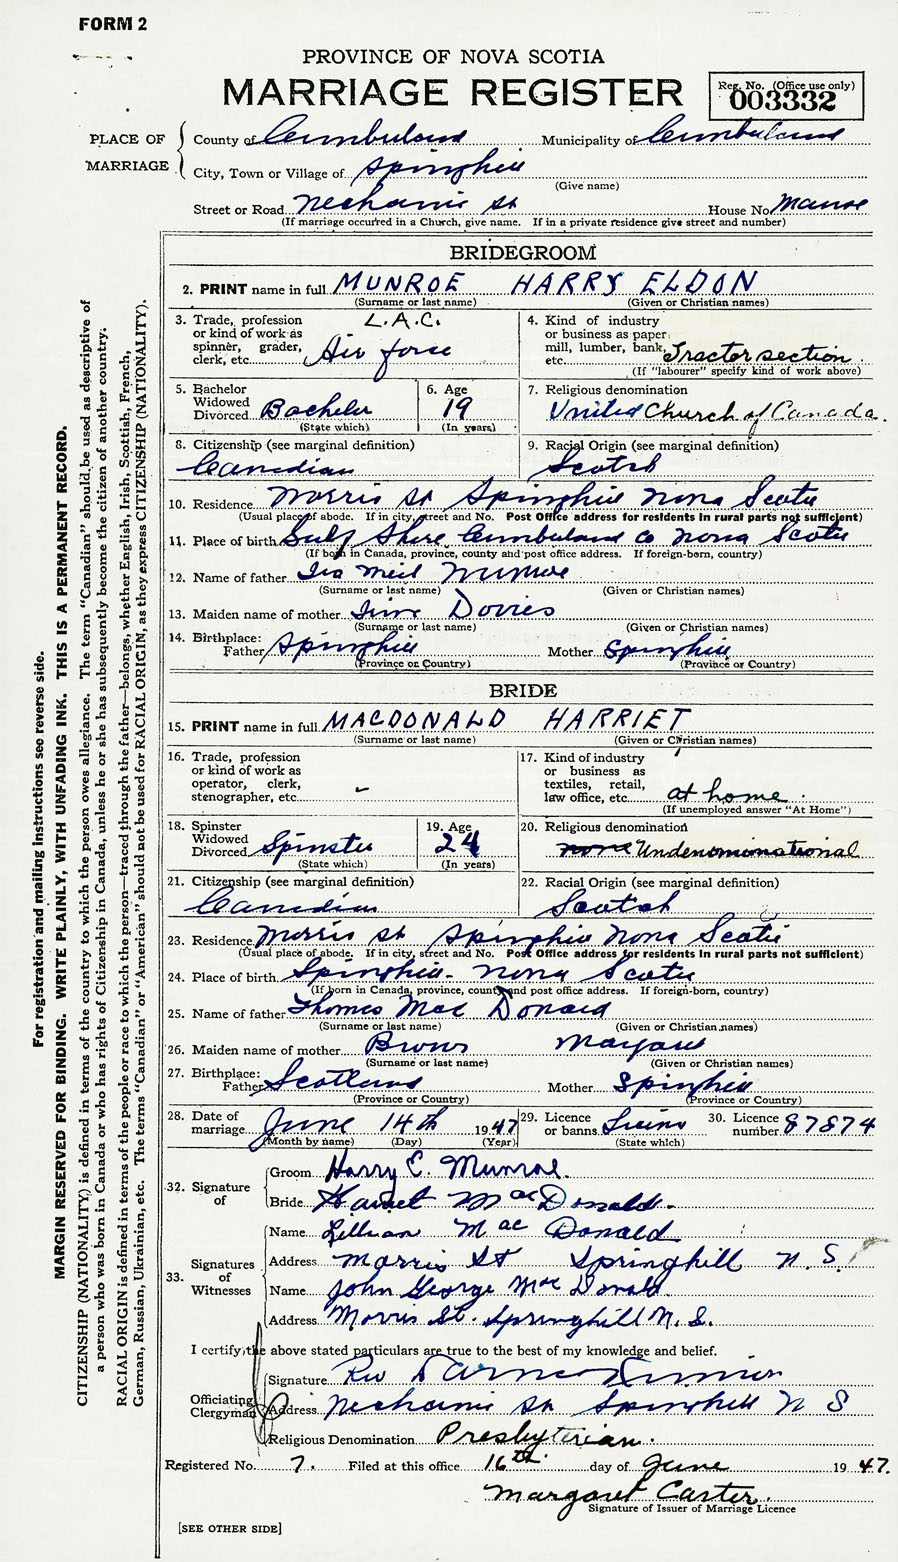 FORM 2
PROVINCE OF NOVA SCOTIA
MARRIAGE REGISTER
Reg. No. (Office use only)
003332
PLACE OF MARRIAGE
County of Cumberland Municipality of Cumberland
City, Town or Village of Springhill
(Give name)
Street or Road Mechanic St House No. Manse
(If marriage occurred in a Church, give name. If in a private residence give street and number)
BRIDEGROOM
2. PRINT name in full MUNROE HARRY ELDON
(Surname or last name) (Given or Christian names)
3. Trade, profession or kind of work as spinner, grader, clerk, etc. L.A.C. Air force
4. Kind of industry or business as paper mill, lumber, bank, etc. Tractor section
(If "labourer" specify kind of work above)
5. Bachelor Widowed Divorced Bachelor
(State which)
6. Age 19
(In years)
7. Religious denomination
United Church of Canada.
8. Citizenship (see marginal definition)
Canadian
9. Racial Origin (see marginal definition)
Scotch
10. Residence Morris St Springhill Nova Scotia
(Usual place of abode. If in city, street and No. Post Office address for residents in rural parts not sufficient)
11. Place of birth Gulf Shore Cumberland Co Nova Scotia
(If born in Canada, province, county and post office address. If foreign-born, country)
12. Name of father Ira Neil Munroe
(Surname or last name) (Given or Christian names)
13. Maiden name of mother Davies
(Surname or last name) (Given or Christian names)
14. Birthplace:
Father Springhill Mother Springhill
(Province or Country) (Province or Country)
BRIDE
15. PRINT name in full MACDONALD HARRIET
(Surname or last name) (Given or Christian names)
16. Trade, profession or kind of work as operator, clerk, stenographer, etc. -
17. Kind of industry or business as textiles, retail, law office, etc. at home.
(If unemployed answer "At Home")
18. Spinster Widowed Divorced Spinster
(State which)
19. Age 24
(In years)
20. Religious denomination
none Undenominational
21. Citizenship (see marginal definition)
Canadian
22. Racial Origin (see marginal definition)
Scotch
23. Residence Morris St Springhill Nova Scotia
(Usual place of abode. If in city, street and No. Post Office address for residents in rural parts not sufficient)
24. Place of birth Springhill - Nova Scotia
(If born in Canada, province, county and post office address. If foreign-born, country)
25. Name of father Thomas Mac Donald
(Surname or last name) (Given or Christian names)
26. Maiden name of mother Brown Margaret
(Surname or last name) (Given or Christian names)
27. Birthplace:
Father Scotland Mother Springhill
(Province or Country) (Province or Country)
28. Date of marriage June 14th 1947
(Month by name) (Day) (Year)
29. Licence or banns Licence
(State which)
30. Licence number 87874
32. Signature of
Groom Harry E. Munroe.
Bride Harriet MacDonald.
33. Signatures of Witnesses
Name Lillian Mac Donald
Address Morris St Springhill N.S.
Name John George Mac Donald
Address Morris St. Springhill N.S.
I certify the above stated particulars are true to the best of my knowledge and belief.
Officiating Clergyman
Signature Rev
Address Mechanic St Springhill N S
Religious Denomination Presbyterian.
Registered No. 7. Filed at this office 16th day of June 1947.
Margaret Carter.
Signature of Issuer of Marriage Licence
[SEE OTHER SIDE]
For registration and mailing instructions see reverse side.
MARGIN RESERVED FOR BINDING. WRITE PLAINLY, WITH UNFADING INK. THIS IS A PERMANENT RECORD.
CITIZENSHIP (NATIONALITY) is defined in terms of the country to which the person owes allegiance. The term "Canadian" should be used as descriptive of
a person who was born in Canada or who has rights of Citizenship in Canada, unless he or she has subsequently become the citizen of another country.
RACIAL ORIGIN is defined in terms of the people or race to which the person—traced through the father—belongs, whether English, Irish, Scottish, French,
German, Russian, Ukrainian, etc. The terms "Canadian" or "American" should not be used for RACIAL ORIGIN, as they express CITIZENSHIP (NATIONALITY).